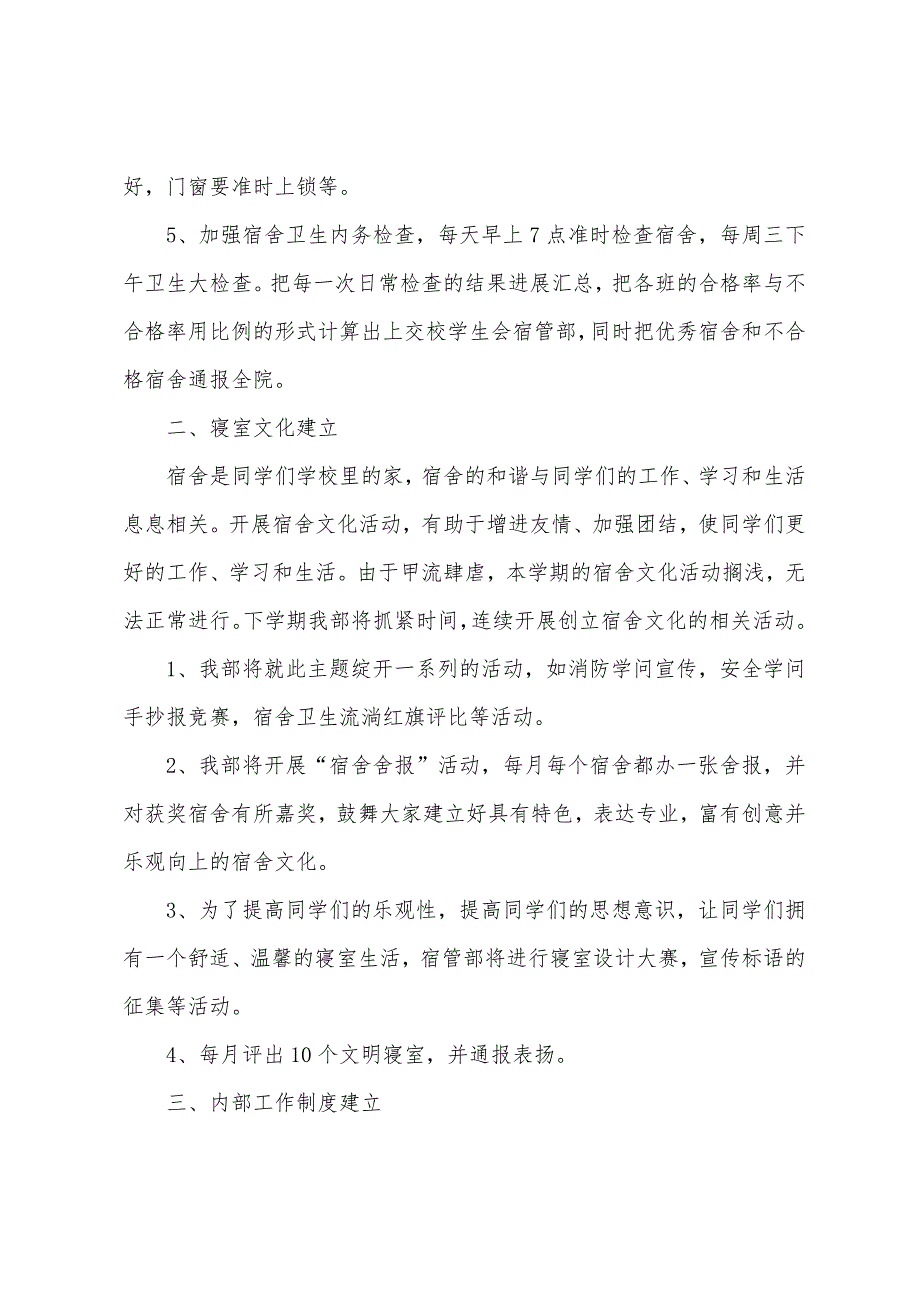 好，门窗要准时上锁等。
5、加强宿舍卫生内务检查，每天早上 7 点准时检查宿舍，每周三下
午卫生大检查。把每一次日常检查的结果进展汇总，把各班的合格率与不
合格率用比例的形式计算出上交校学生会宿管部，同时把优秀宿舍和不合
格宿舍通报全院。
二、寝室文化建立
宿舍是同学们学校里的家，宿舍的和谐与同学们的工作、学习和生活
息息相关。开展宿舍文化活动，有助于增进友情、加强团结，使同学们更
好的工作、学习和生活。由于甲流肆虐，本学期的宿舍文化活动搁浅，无
法正常进行。下学期我部将抓紧时间，连续开展创立宿舍文化的相关活动。
1、我部将就此主题绽开一系列的活动，如消防学问宣传，安全学问
手抄报竞赛，宿舍卫生流淌红旗评比等活动。
2、我部将开展“宿舍舍报”活动，每月每个宿舍都办一张舍报，并
对获奖宿舍有所嘉奖，鼓舞大家建立好具有特色，表达专业，富有创意并
乐观向上的宿舍文化。
3、为了提高同学们的乐观性，提高同学们的思想意识，让同学们拥
有一个舒适、温馨的寝室生活，宿管部将进行寝室设计大赛，宣传标语的
征集等活动。
4、每月评出 10 个文明寝室，并通报表扬。
三、内部工作制度建立